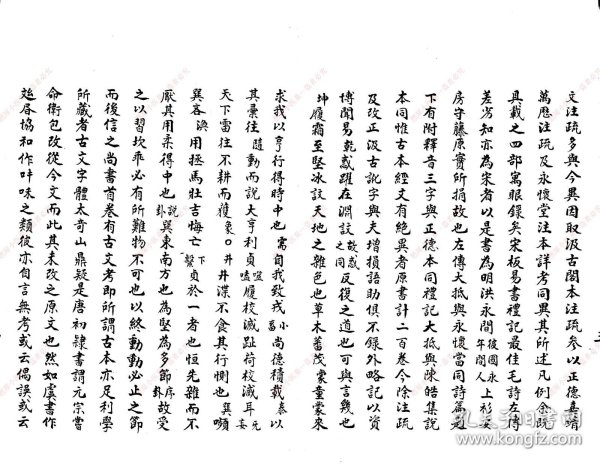 文注疏多與今異因取汲古閣本注疏參以正德嘉靖
萬曆注疏及永懷堂注本詳考同異其所述凡例余既
具載之四部寓眼錄矣宋板易書禮記最佳毛詩左傳
差劣知亦為宋者以是書為明洪永間人後國永年上杉安
房守藤原實所捐故也左傳大抵與永懷堂同詩篇題
下有附釋音三字與正德本同禮記大抵與陳皓集說
本同惟古本經文有絕異者原書計二百卷今除注疏
及改正汲古訛字與夫增損語助俱不錄外略記以資
博聞易乾或躍在淵註故或之同反復之道也可與言幾也
坤履霜至堅冰註天地之雜也色也草木蕃茂蒙童蒙來
求我以亨行得時中也需自我致戎小畜尚德積載泰以
其彙往隨動而說大亨利貞噬嗑屨校滅趾荷校滅耳无妄
天下雷往不耕而獲象〇井井渫不食其行惻也巽嚬
巽吝渙用拯馬壯吉悔亡繫下貞於一者也恒先雜而不
厭其用柔得中也說卦巽東南方也為堅為多節序卦故受
之以習坎乖必有所難物不可也以終動動必止之節
而後信之尚書首卷有古文考即所謂古本亦足利學
所藏者古文字體太奇山鼎疑是唐初隸書謂元宗嘗
命衛包改從今文而此其未改之原文也然如虞書作
協和作叶味之類彼亦自言無考或云偶誤或云
孔夫子旧书网
www.kongfz.com